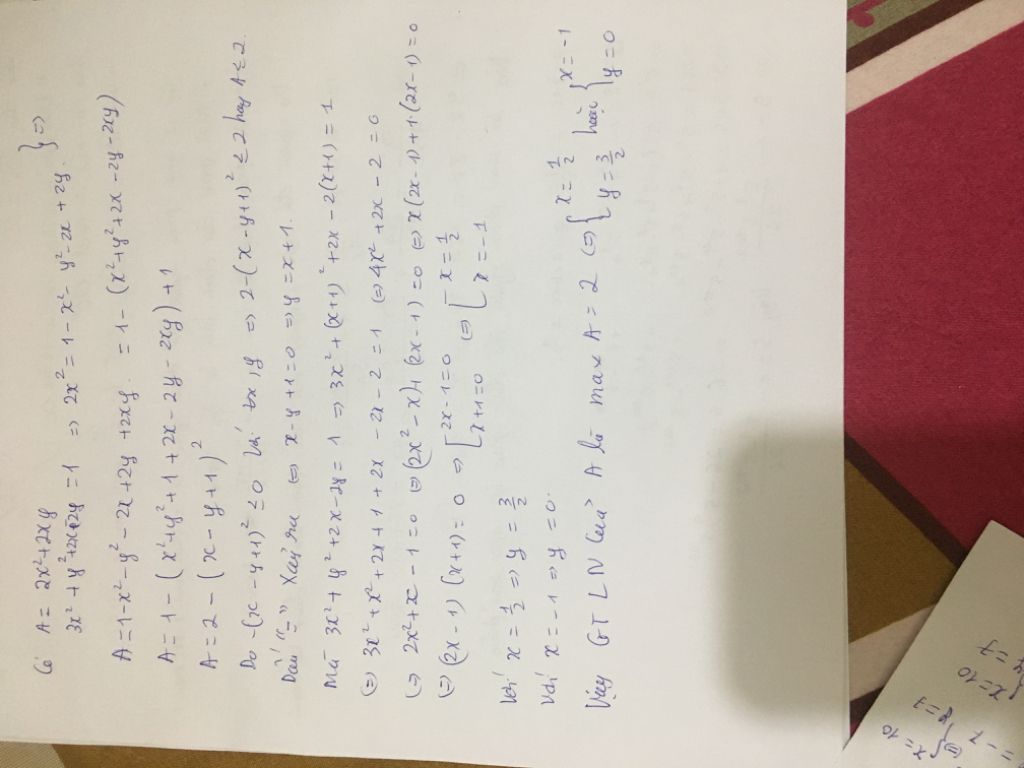 Có A = 2x²+2xy
3x²+y²+2x-2y = 1 => 2x² = 1-x²-y²-2x+2y. } =>
A = 1-x²-y²-2x+2y+2xy. = 1-(x²+y²+2x-2y-2xy)
A = 1-(x²+y²+1+2x-2y-2xy)+1
A = 2-(x-y+1)²
Do -(x-y+1)² ≤ 0 Với ∀x,y => 2-(x-y+1)² ≤ 2 hay A ≤ 2.
Dấu "=" Xảy ra <=> x-y+1=0 => y=x+1.
Mà 3x²+y²+2x-2y = 1 => 3x²+(x+1)²+2x-2(x+1) = 1
<=> 3x²+x²+2x+1+2x-2x-2 = 1 <=> 4x²+2x-2 = 0
<=> 2x²+x-1 = 0 <=> (2x²-x)+(2x-1) = 0 <=> x(2x-1)+1(2x-1) = 0
<=> (2x-1)(x+1) = 0 => [ 2x-1=0 x+1=0 <=> [ x=1/2 x=-1
Với x = 1/2 => y = 3/2
Với x = -1 => y = 0.
Vậy GTLN của A là max A = 2 <=> { x = 1/2 y = 3/2 hoặc { x = -1 y = 0
x=10
y=7
x=10
= 7